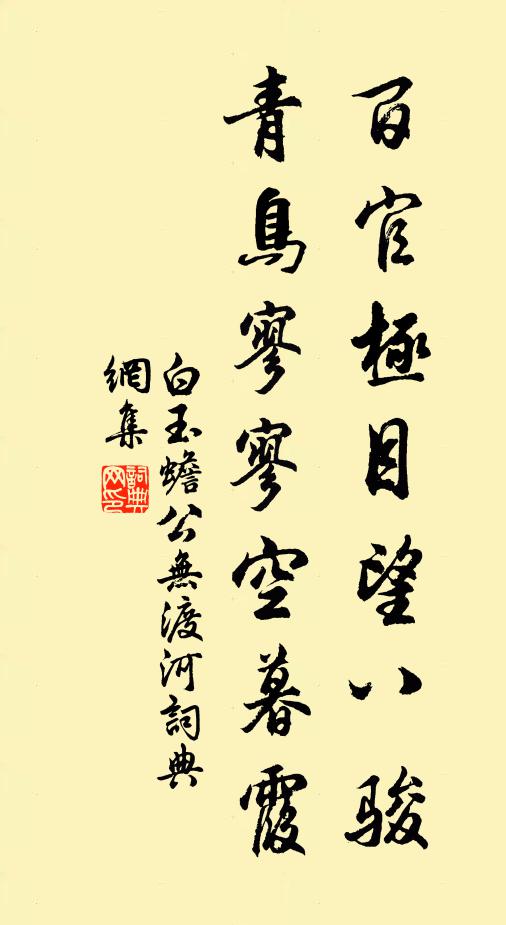 百官極目望八駿
青鳥寥寥空暮霞
白玉蟾公無渡河詞典
網集
詞典
網印